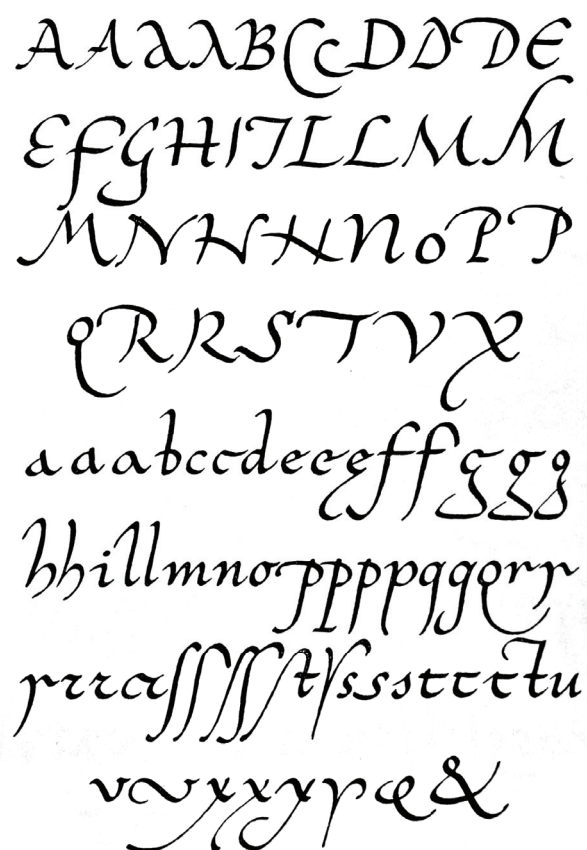 AAaλBCcDDDE
EFGHIILLMM
MNHHNOPP
QRRSTVX
aaabccdeeęffggg
hhillmnoppppqqQrr
rrraſſſſſtſsssttttu
vvxxxyę&